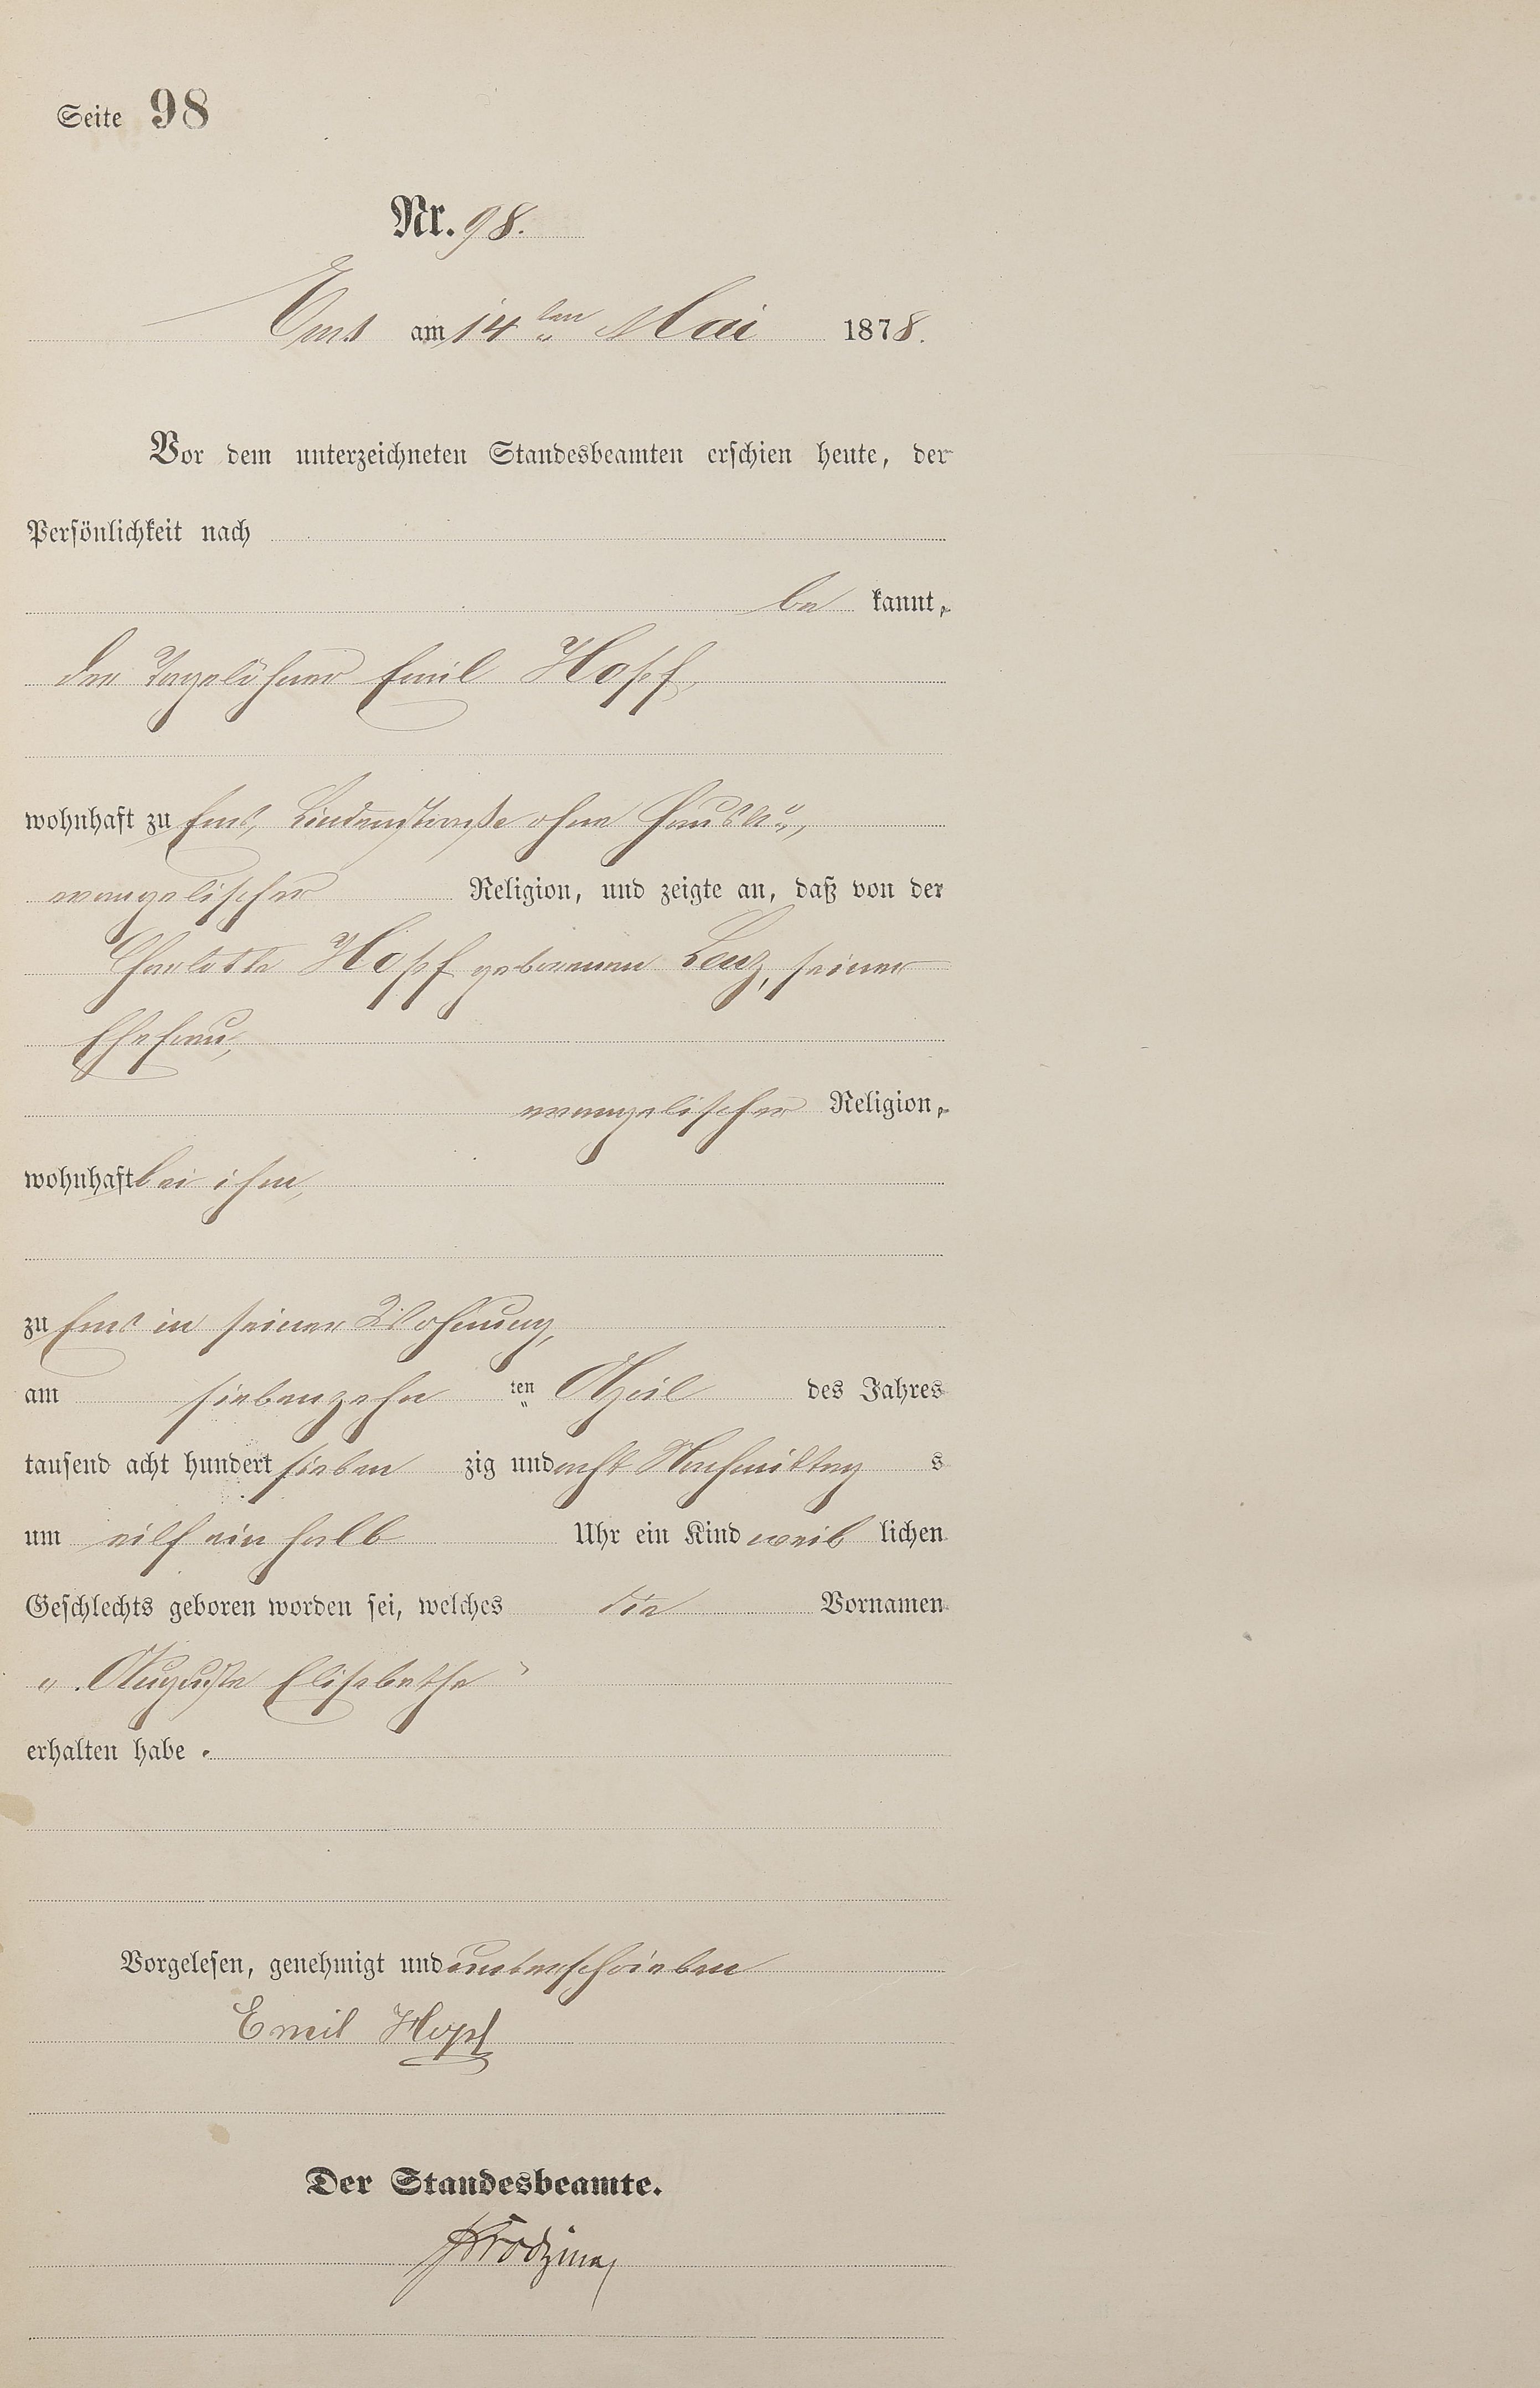 Seite 98
Nr. 98.
Ems am 14ten Mai 1878.
Vor dem unterzeichneten Standesbeamten erschien heute, der
Persönlichkeit nach
be kannt,
der Tagelöhner Emil Hopf,
wohnhaft zu Ems, Lindenstraße ohne Haus No,
evangelischer Religion, und zeigte an, daß von der
Charlotte Hopf geborenen Lenz, seiner
Ehefrau,
evangelischer Religion,
wohnhaft bei ihm,
zu Ems in seiner Wohnung,
am siebenzehn ten April des Jahres
tausend acht hundert sieben zig und acht Nachmittag s
um eilf ein halb Uhr ein Kind weib lichen
Geschlechts geboren worden sei, welches die Vornamen
„Auguste Elisabethe“
erhalten habe.
Vorgelesen, genehmigt und unterschrieben
Emil Hopf
Der Standesbeamte.